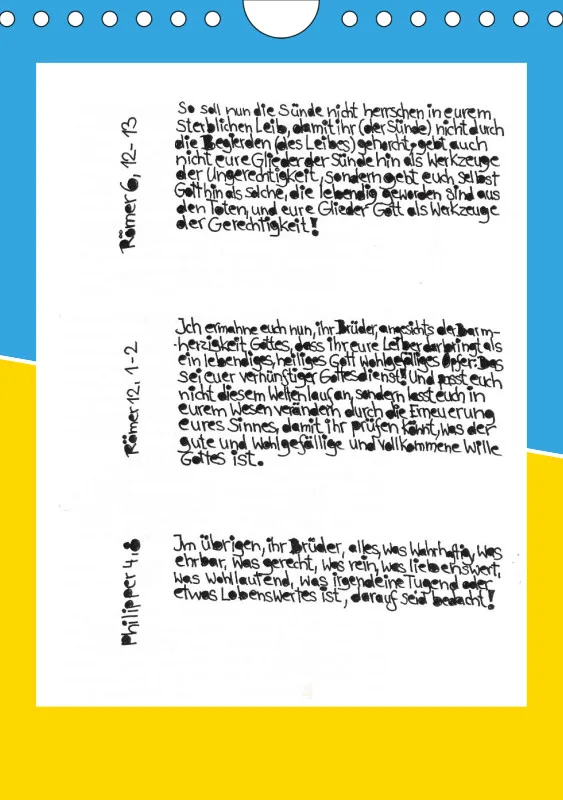 Römer 6, 12-13
So soll nun die Sünde nicht herrschen in eurem
sterblichen Leib, damit ihr (der Sünde) nicht durch
die Begierden (des Leibes) gehorcht; gebt auch
nicht eure Glieder der Sünde hin als Werkzeuge
der Ungerechtigkeit, sondern gebt euch selbst
Gott hin als solche, die lebendig geworden sind aus
den Toten, und eure Glieder Gott als Werkzeuge
der Gerechtigkeit!
Römer 12, 1-2
Ich ermahne euch nun, ihr Brüder, angesichts der Barm-
-herzigkeit Gottes, dass ihr eure Leiber darbringt als
ein lebendiges, heiliges Gott wohlgefälliges Opfer: Das
sei euer vernünftiger Gottesdienst! Und passt euch
nicht diesem Weltenlauf an, sondern lasst euch in
eurem Wesen verändern durch die Erneuerung
eures Sinnes, damit ihr prüfen könnt, was der
gute und wohlgefällige und vollkommene Wille
Gottes ist.
Philipper 4,8
Im übrigen, ihr Brüder, alles, was wahrhaftig, was
ehrbar, was gerecht, was rein, was liebenswert,
was wohllautend, was irgendeine Tugend oder
etwas Lobenswertes ist, darauf seid bedacht!